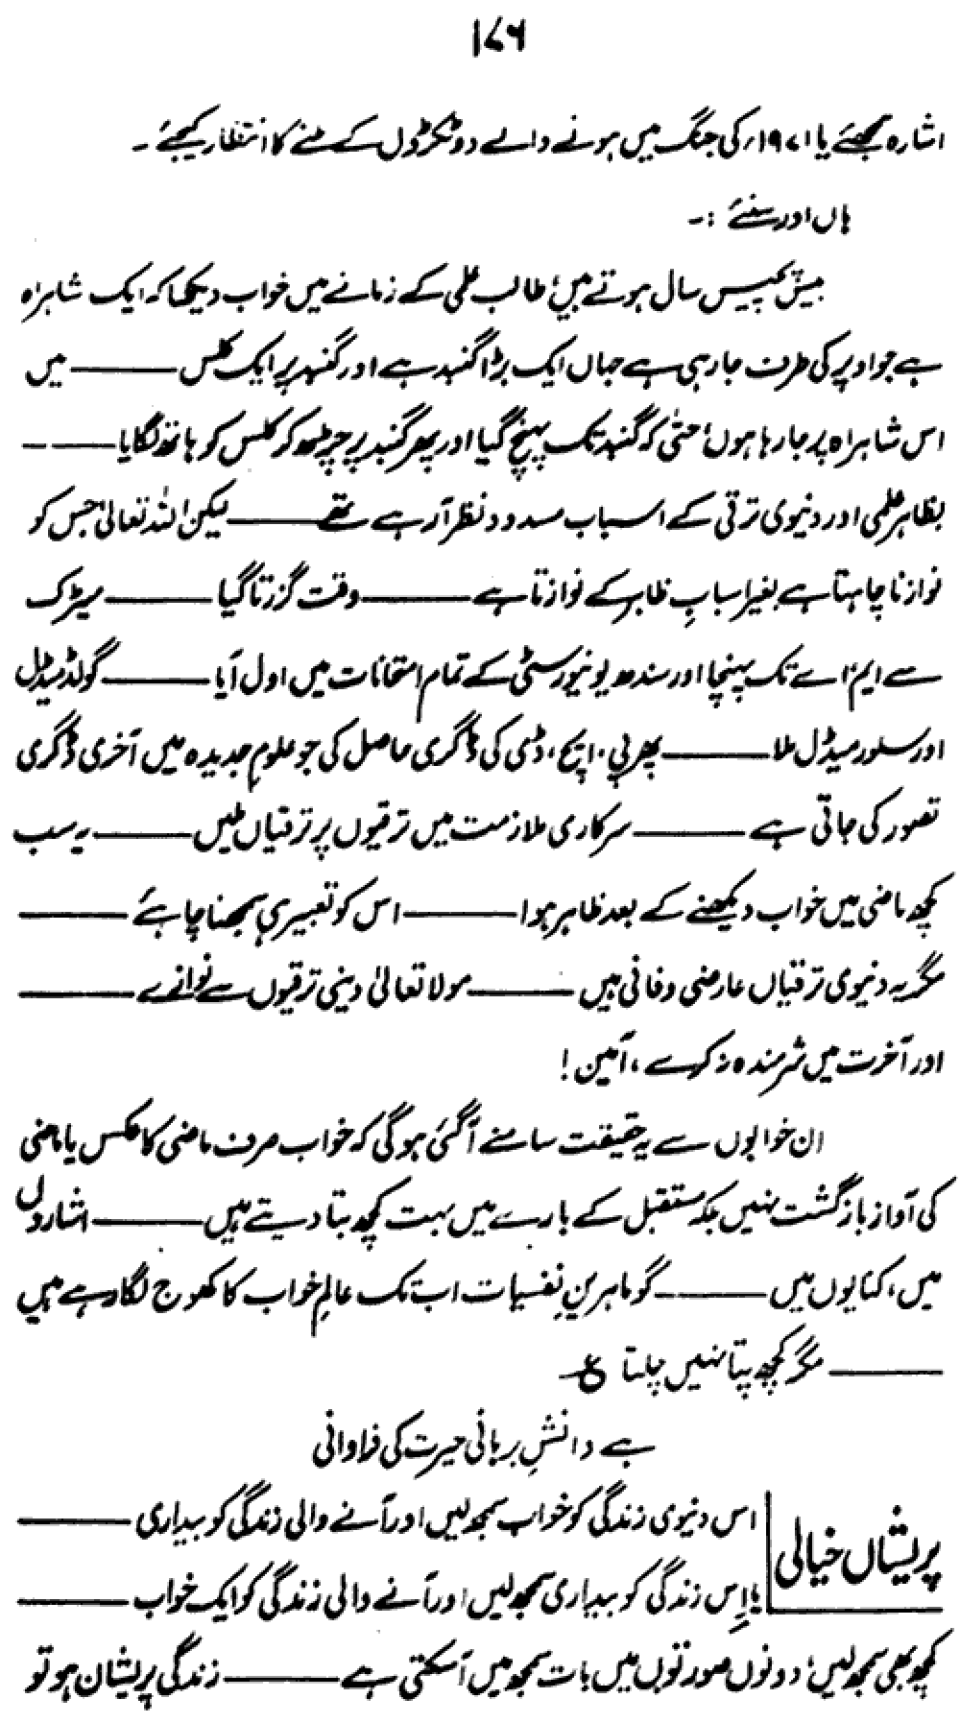 ۱۷۶
اشارہ سمجھئے یا ۱۹۷۱ء کی جنگ میں ہونے والے دو ٹکڑوں کے ملنے کا انتظار کیجئے ۔
ہاں اور سنئے :۔
بیس پچیس سال ہوتے ہیں؛ طالب علمی کے زمانے میں خواب دیکھا کہ ایک شاہراہ
ہے جو اوپر کی طرف جا رہی ہے جہاں ایک بڑا گنبد ہے اور گنبد پر ایک کلس ——— میں
اس شاہراہ پر جا رہا ہوں؛ حتیٰ کہ گنبد تک پہنچ گیا اور پھر گنبد پر چڑھ کر کلس کو ہاتھ لگایا ———
بظاہر علمی اور دنیوی ترقی کے اسباب مسدود نظر آ رہے تھے ——— لیکن اللہ تعالیٰ جس کو
نوازنا چاہتا ہے بغیر اسبابِ ظاہر کے نوازتا ہے ——— وقت گزرتا گیا ——— میٹرک
سے ایم اے تک پہنچا اور سندھ یونیورسٹی کے تمام امتحانات میں اول آیا ——— گولڈ میڈل
اور سلور میڈل ملا ——— پھر پی، ایچ، ڈی کی ڈگری حاصل کی جو علومِ جدیدہ میں آخری ڈگری
تصور کی جاتی ہے ——— سرکاری ملازمت میں ترقیوں پر ترقیاں ملیں ——— یہ سب
کچھ ماضی میں خواب دیکھنے کے بعد ظاہر ہوا ——— اس کو تعبیر ہی سمجھنا چاہئے ———
مگر یہ دنیوی ترقیاں عارضی و فانی ہیں ——— مولا تعالیٰ دینی ترقیوں سے نوازے ———
اور آخرت میں شرمندہ نہ کرے ، آمین !
ان خوابوں سے یہ حقیقت سامنے آگئی ہوگی کہ خواب صرف ماضی کا عکس یا ماضی
کی آواز بازگشت نہیں بلکہ مستقبل کے بارے میں بہت کچھ بتا دیتے ہیں ——— اشاروں
میں، کنایوں میں ——— گو ماہرینِ نفسیات اب تک عالمِ خواب کا کھوج لگا رہے ہیں
——— مگر کچھ پتا نہیں چلتا ع
ہے دانشِ برہانی حیرت کی فراوانی
پریشاں خیالی
اس دنیوی زندگی کو خواب سمجھ لیں اور آنے والی زندگی کو بیداری ———
یا اِس زندگی کو بیداری سمجھ لیں اور آنے والی زندگی کو ایک خواب ———
کچھ بھی سمجھ لیں؛ دونوں صورتوں میں بات سمجھ میں آ سکتی ہے ——— زندگی پریشان ہو تو